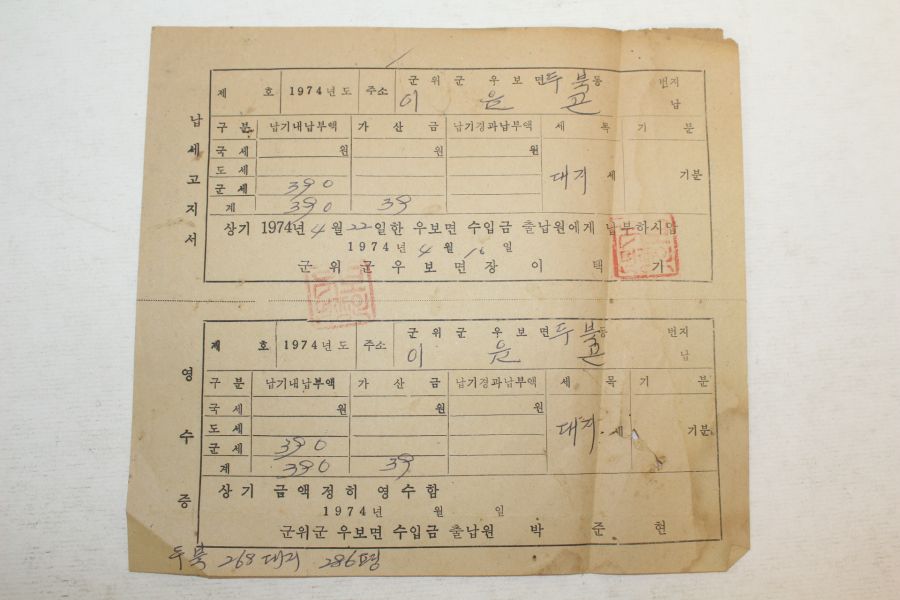 납세고지서
제 호 1974년도 주소 군위군 우보면 두북동 번지
이 납
구분 납기내납부액 가산금 납기경과납부액 세목 기분
국세 원 원 원
도세
군세 390
계 390 39
대지세 기분
상기 1974년 4월 22일한 우보면 수입금 출납원에게 납부하시압
1974년 4월 16일
군위군우보면장 이택기
영수증
제 호 1974년도 주소 군위군 우보면 두북동 번지
이 납
구분 납기내납부액 가산금 납기경과납부액 세목 기분
국세 원 원 원
도세
군세 390
계 390 39
대지세 기분
상기 금액정히 영수함
1974년 월 일
군위군 우보면 수입금 출납원 박준현
두북 268 대지 286평